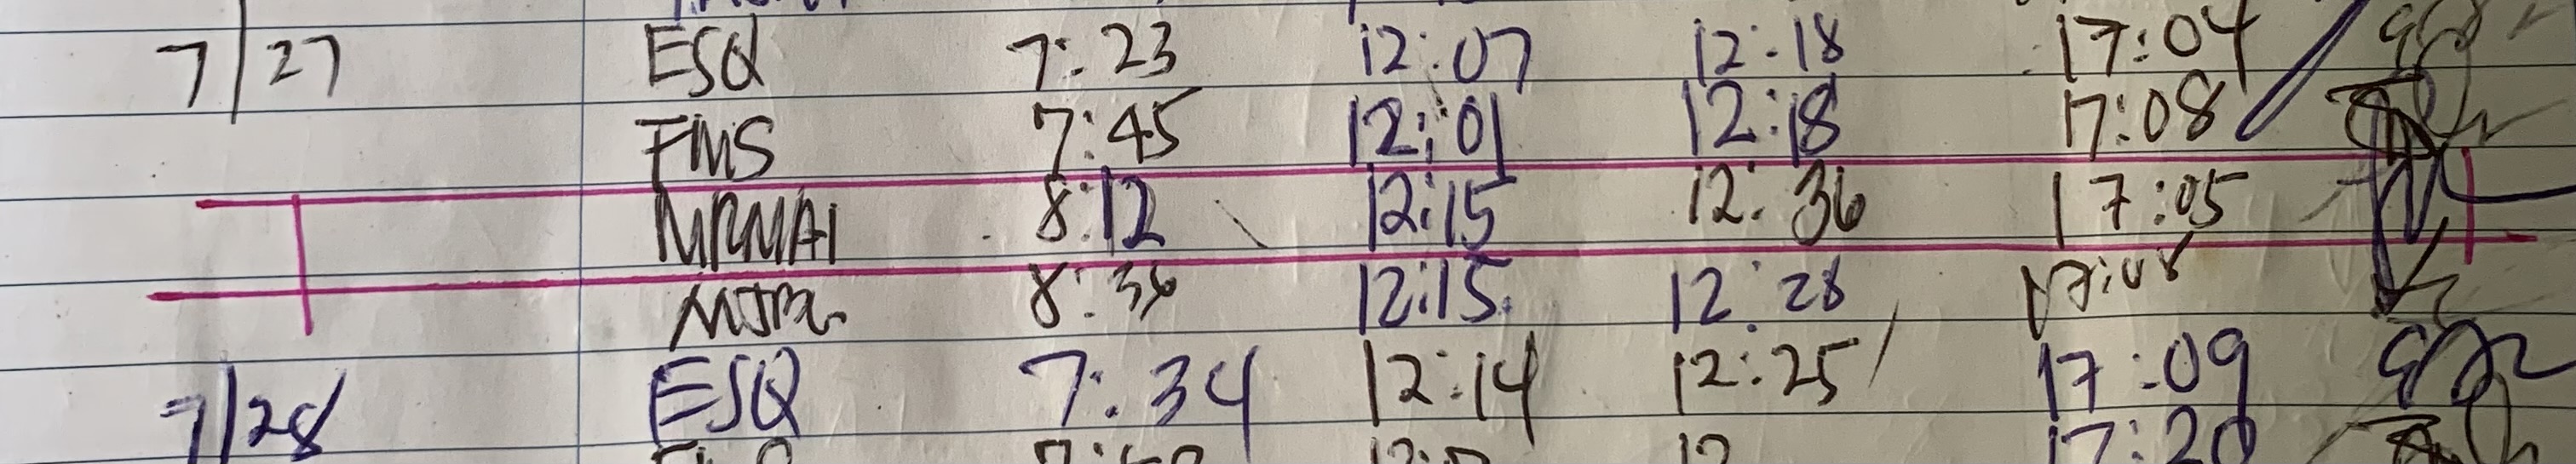 7/27 ESQ 7:23 12:07 12:18 17:04
FMS 7:45 12:01 12:18 17:08
MRMAI 8:12 12:15 12:36 17:05
8:36 12:15 12:28 17:08
7/28 ESQ 7:34 12:14 12:25 17:09
17:20